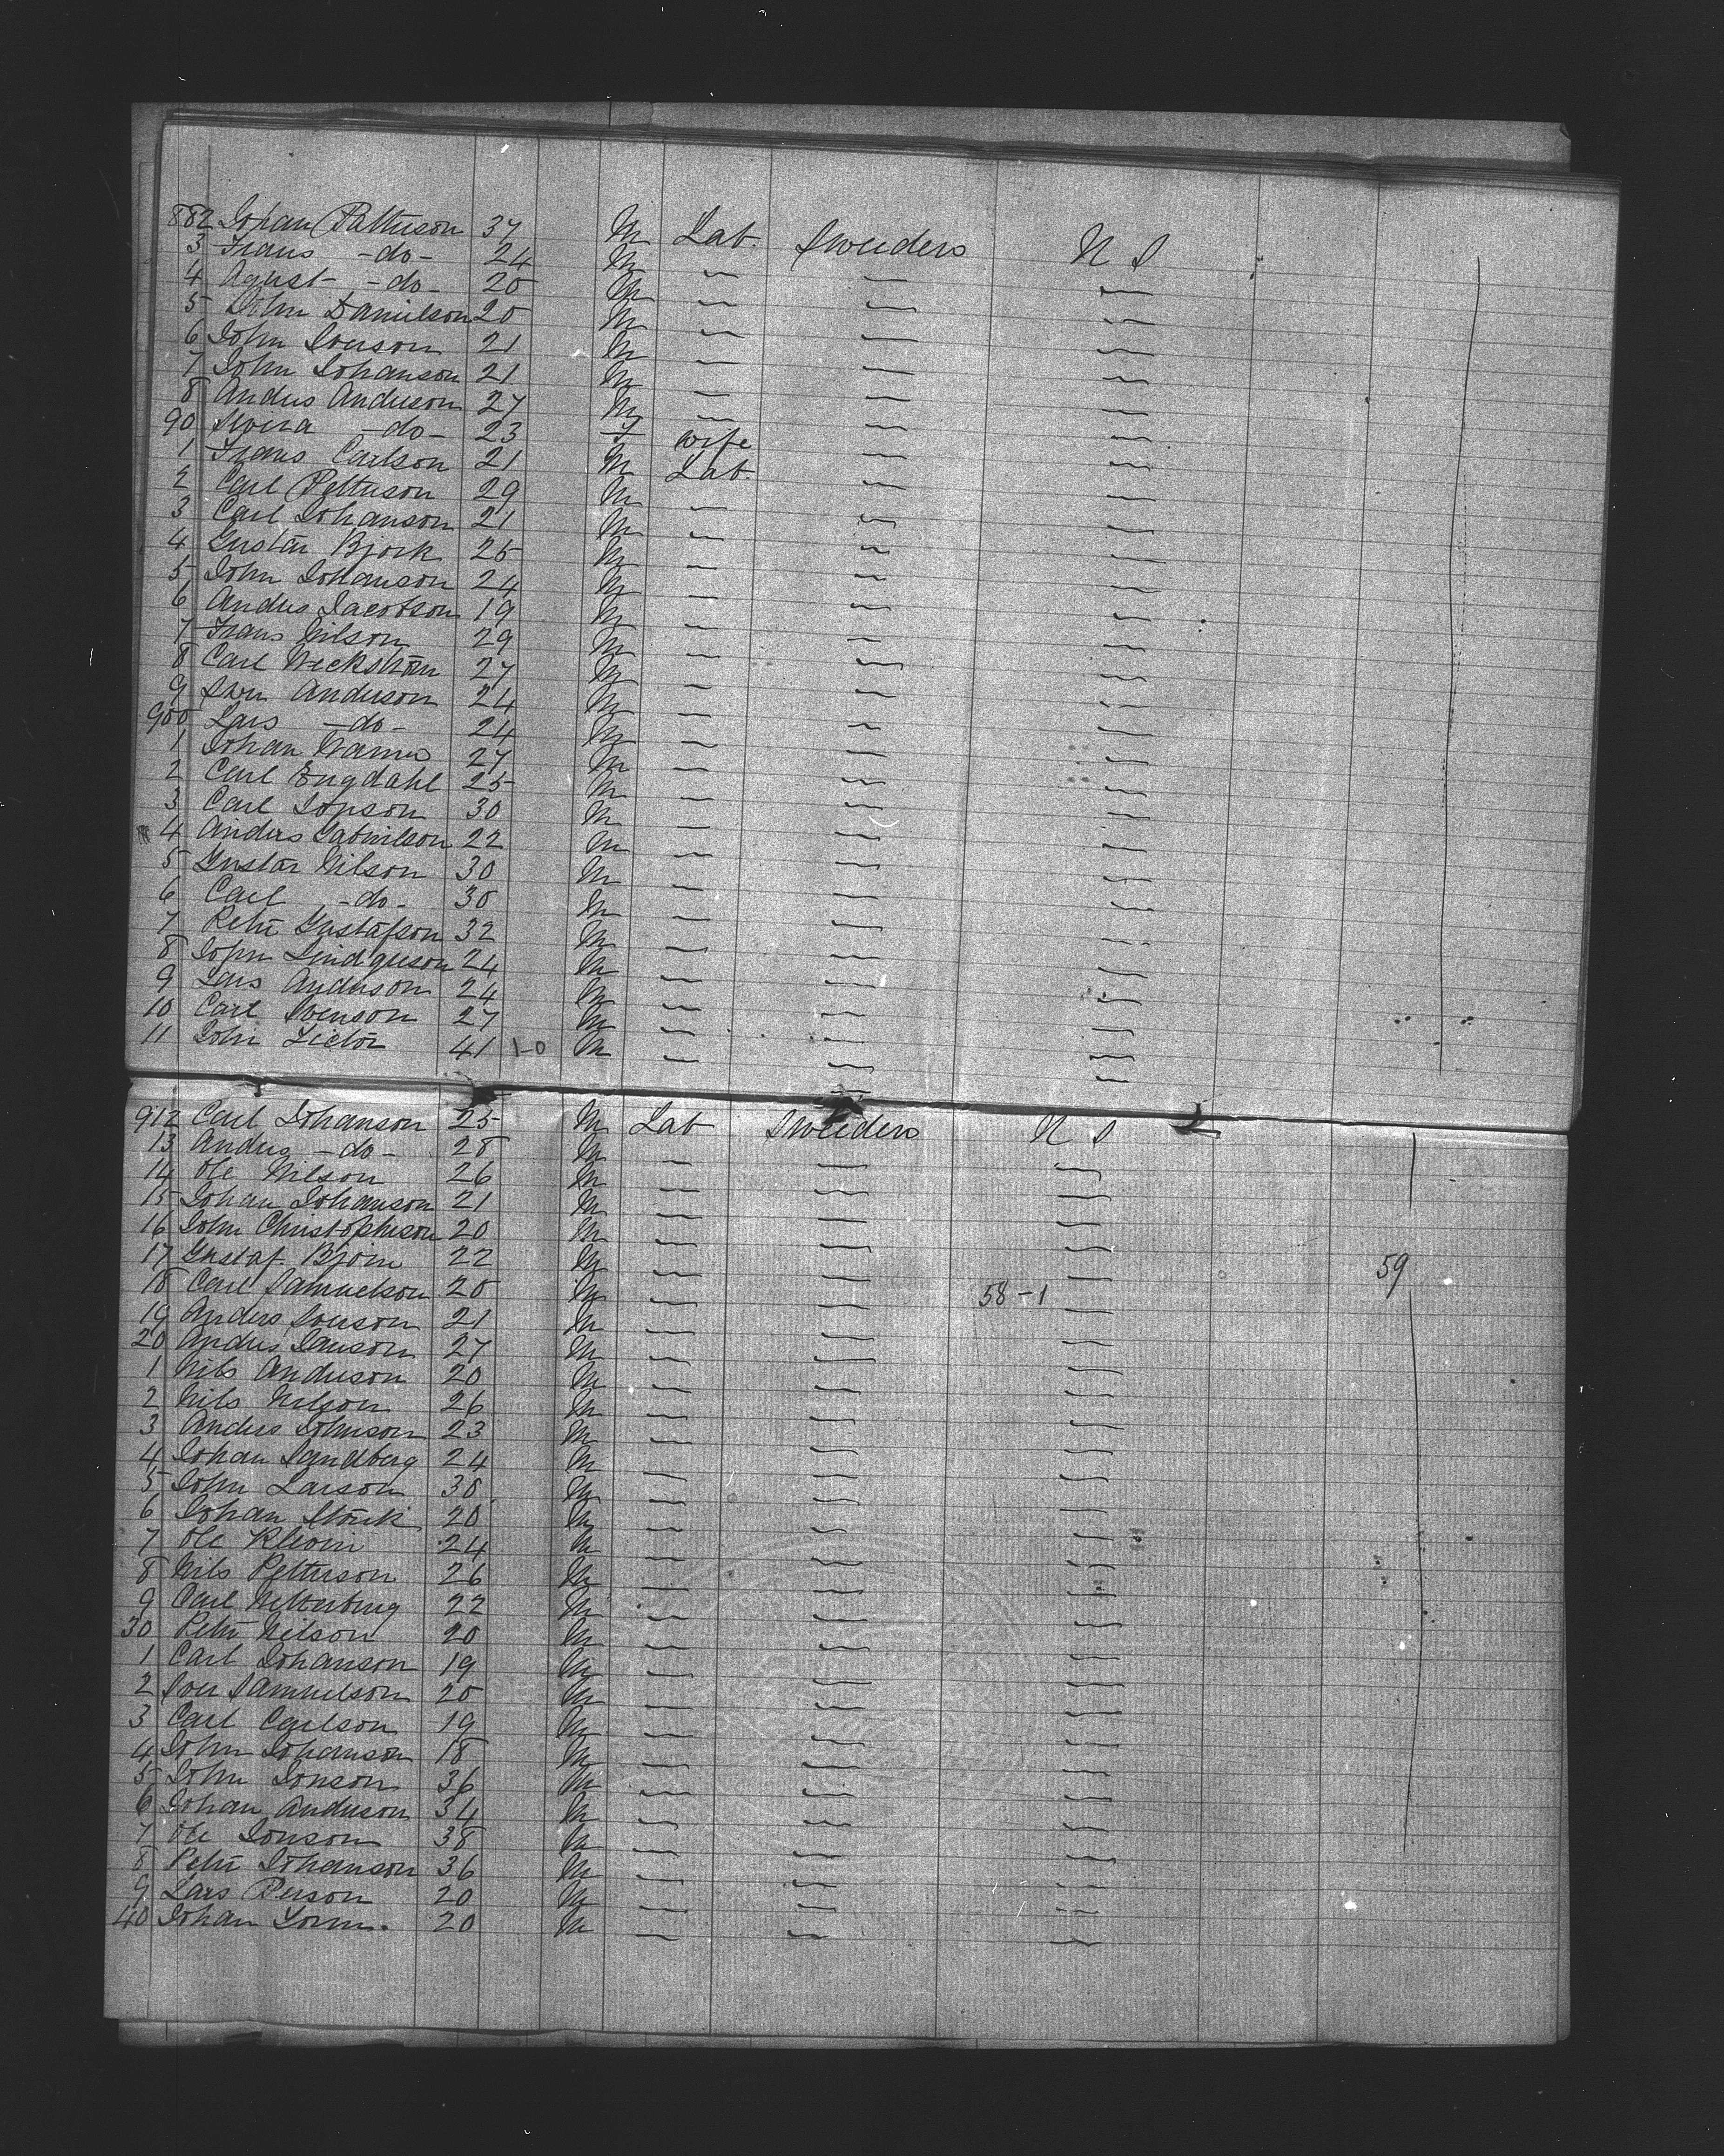 882 Johan Patterson 37 M Lab. Sweeden N S
3 Frans -do- 24 M — — —
4 Agust -do- 20 M — — —
5 John Danielson 20 M — — —
6 John Iverson 21 M — — —
7 John Johanson 21 M — — —
8 Anders Anderson 27 M — — —
90 -do- 23 F wife — —
1 Frans Carlson 21 M Lab. — —
2 Carl Petterson 29 M — — —
3 Carl Johanson 21 M — — —
4 Gustav Bjork 25 M — — —
5 John Johanson 24 M — — —
6 Anders Jacobson 19 M — — —
7 Frans Nilson 29 M — — —
8 Carl Weckstrom 27 M — — —
9 Sven Anderson 24 M — — —
900 Lars -do- 24 M — — —
1 Johan 27 M — — —
2 Carl Engdahl 25 M — — —
3 Carl Jonson 30 M — — —
4 Anders Gabrielson 22 M — — —
5 Gustav Nilson 30 M — — —
6 Carl -do- 30 M — — —
7 Peter Gustafson 32 M — — —
8 John Lindgreson 24 M — — —
9 Lars Anderson 24 M — — —
10 Carl Svenson 27 M — — —
11 John 41 1-0 M — — —
912 Carl Johanson 25 M Lab Sweeden N S
13 Anders -do- 28 M — — —
14 Ole Nilson 26 M — — —
15 Johan Johanson 21 M — — —
16 John Christopherson 20 M — — —
17 Gustaf Bjorn 22 M — — — 59
18 Carl Samuelson 20 M — — 58-1 —
19 Anders Iverson 21 M — — —
20 Anders Janson 27 M — — —
1 Nils Anderson 20 M — — —
2 Nils Nilson 26 M — — —
3 Anders Johnson 23 M — — —
4 Johan Sandberg 24 M — — —
5 John Larson 30 M — — —
6 Johan 20 M — — —
7 Ole 24 M — — —
8 Nils Petterson 26 M — — —
9 Carl Wetterberg 22 M — — —
30 Peter Nilson 20 M — — —
1 Carl Johanson 19 M — — —
2 Iver Samuelson 20 M — — —
3 Carl Carlson 19 M — — —
4 John Johanson 18 M — — —
5 John Jonson 36 M — — —
6 Johan Anderson 34 M — — —
7 Ole Jonson 38 M — — —
8 Peter Johanson 36 M — — —
9 Lars Person 20 M — — —
40 Johan 20 M — — —